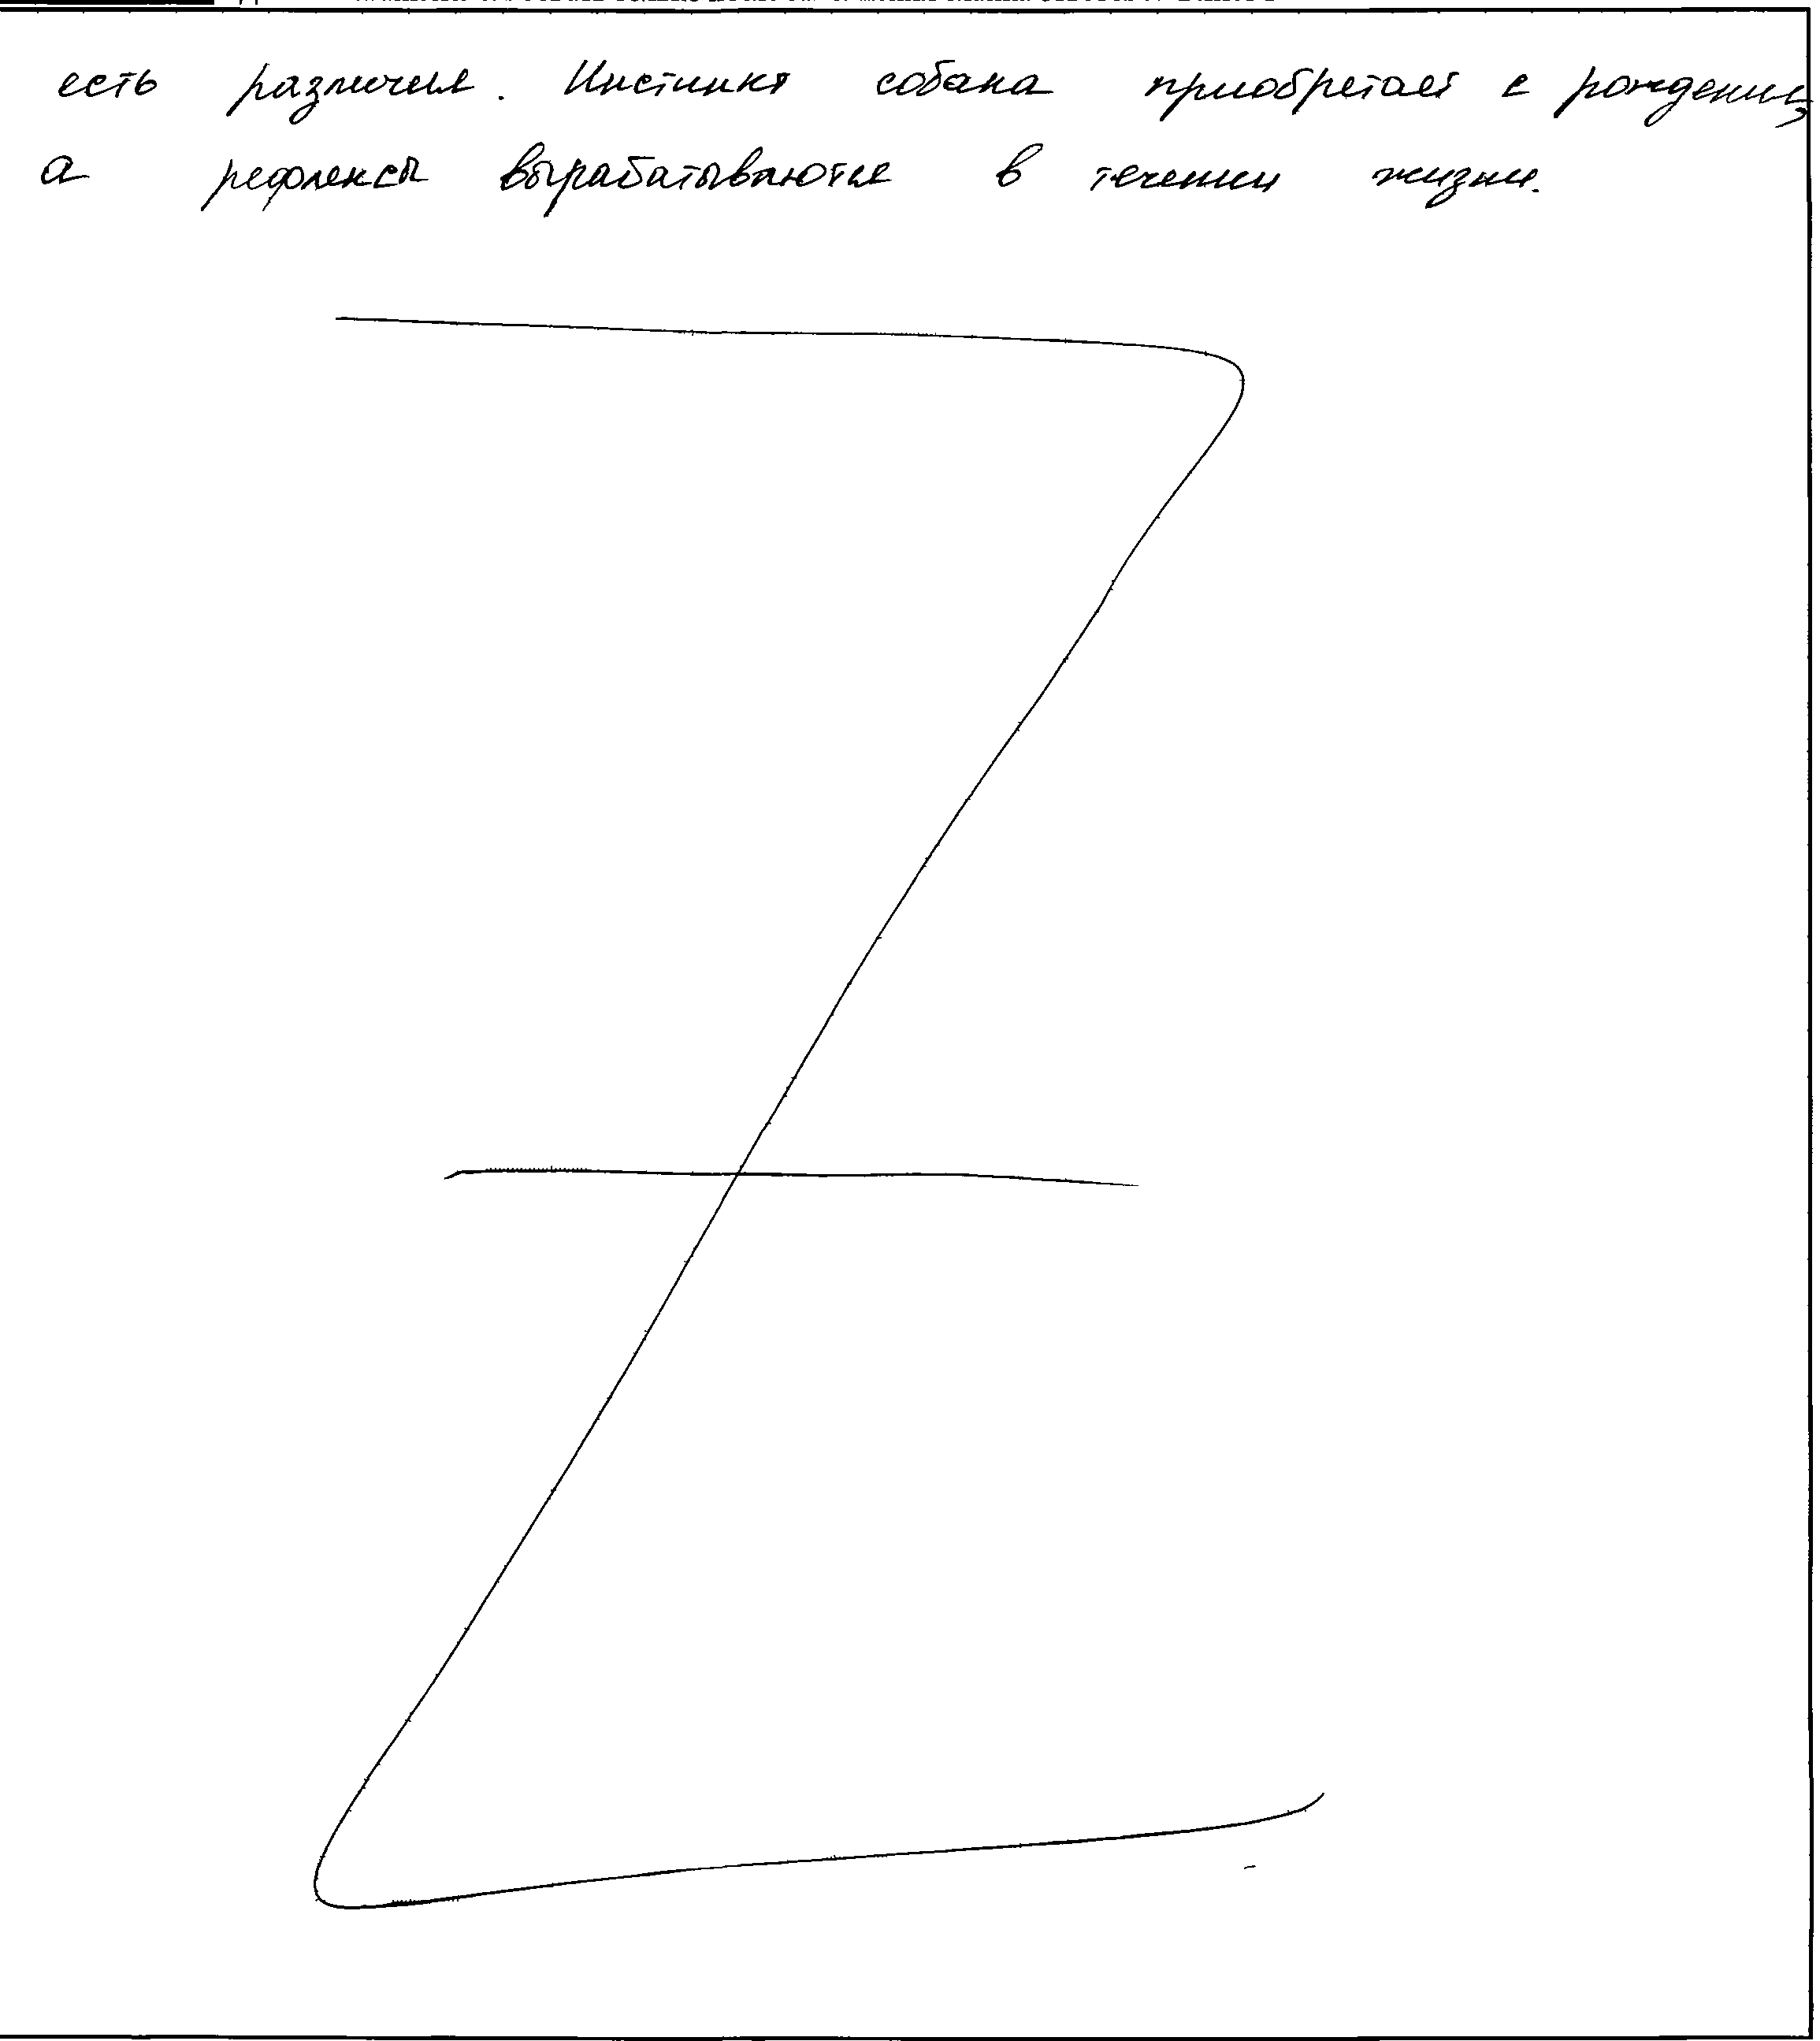 есть различия. Инстинкт собака приобретает с рождения,
а рефлексы вырабатываются в течении жизни.